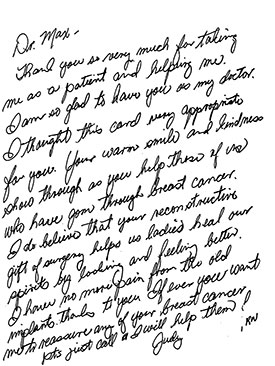 Dr. Max -
Thank you so very much for taking
me as a patient and helping me.
I am so glad to have you as my doctor.
I thought this card very appropriate
for you. Your warm smile and kindness
show through as you help those of us
who have gone through breast cancer.
I do believe that your reconstructive
gift of surgery helps us ladies heal our
spirits by looking and feeling better.
I have no more pain from the old
implants thanks to you. If ever you want
me to reassure any of your breast cancer
pts just call & I will help them!
Judy RN